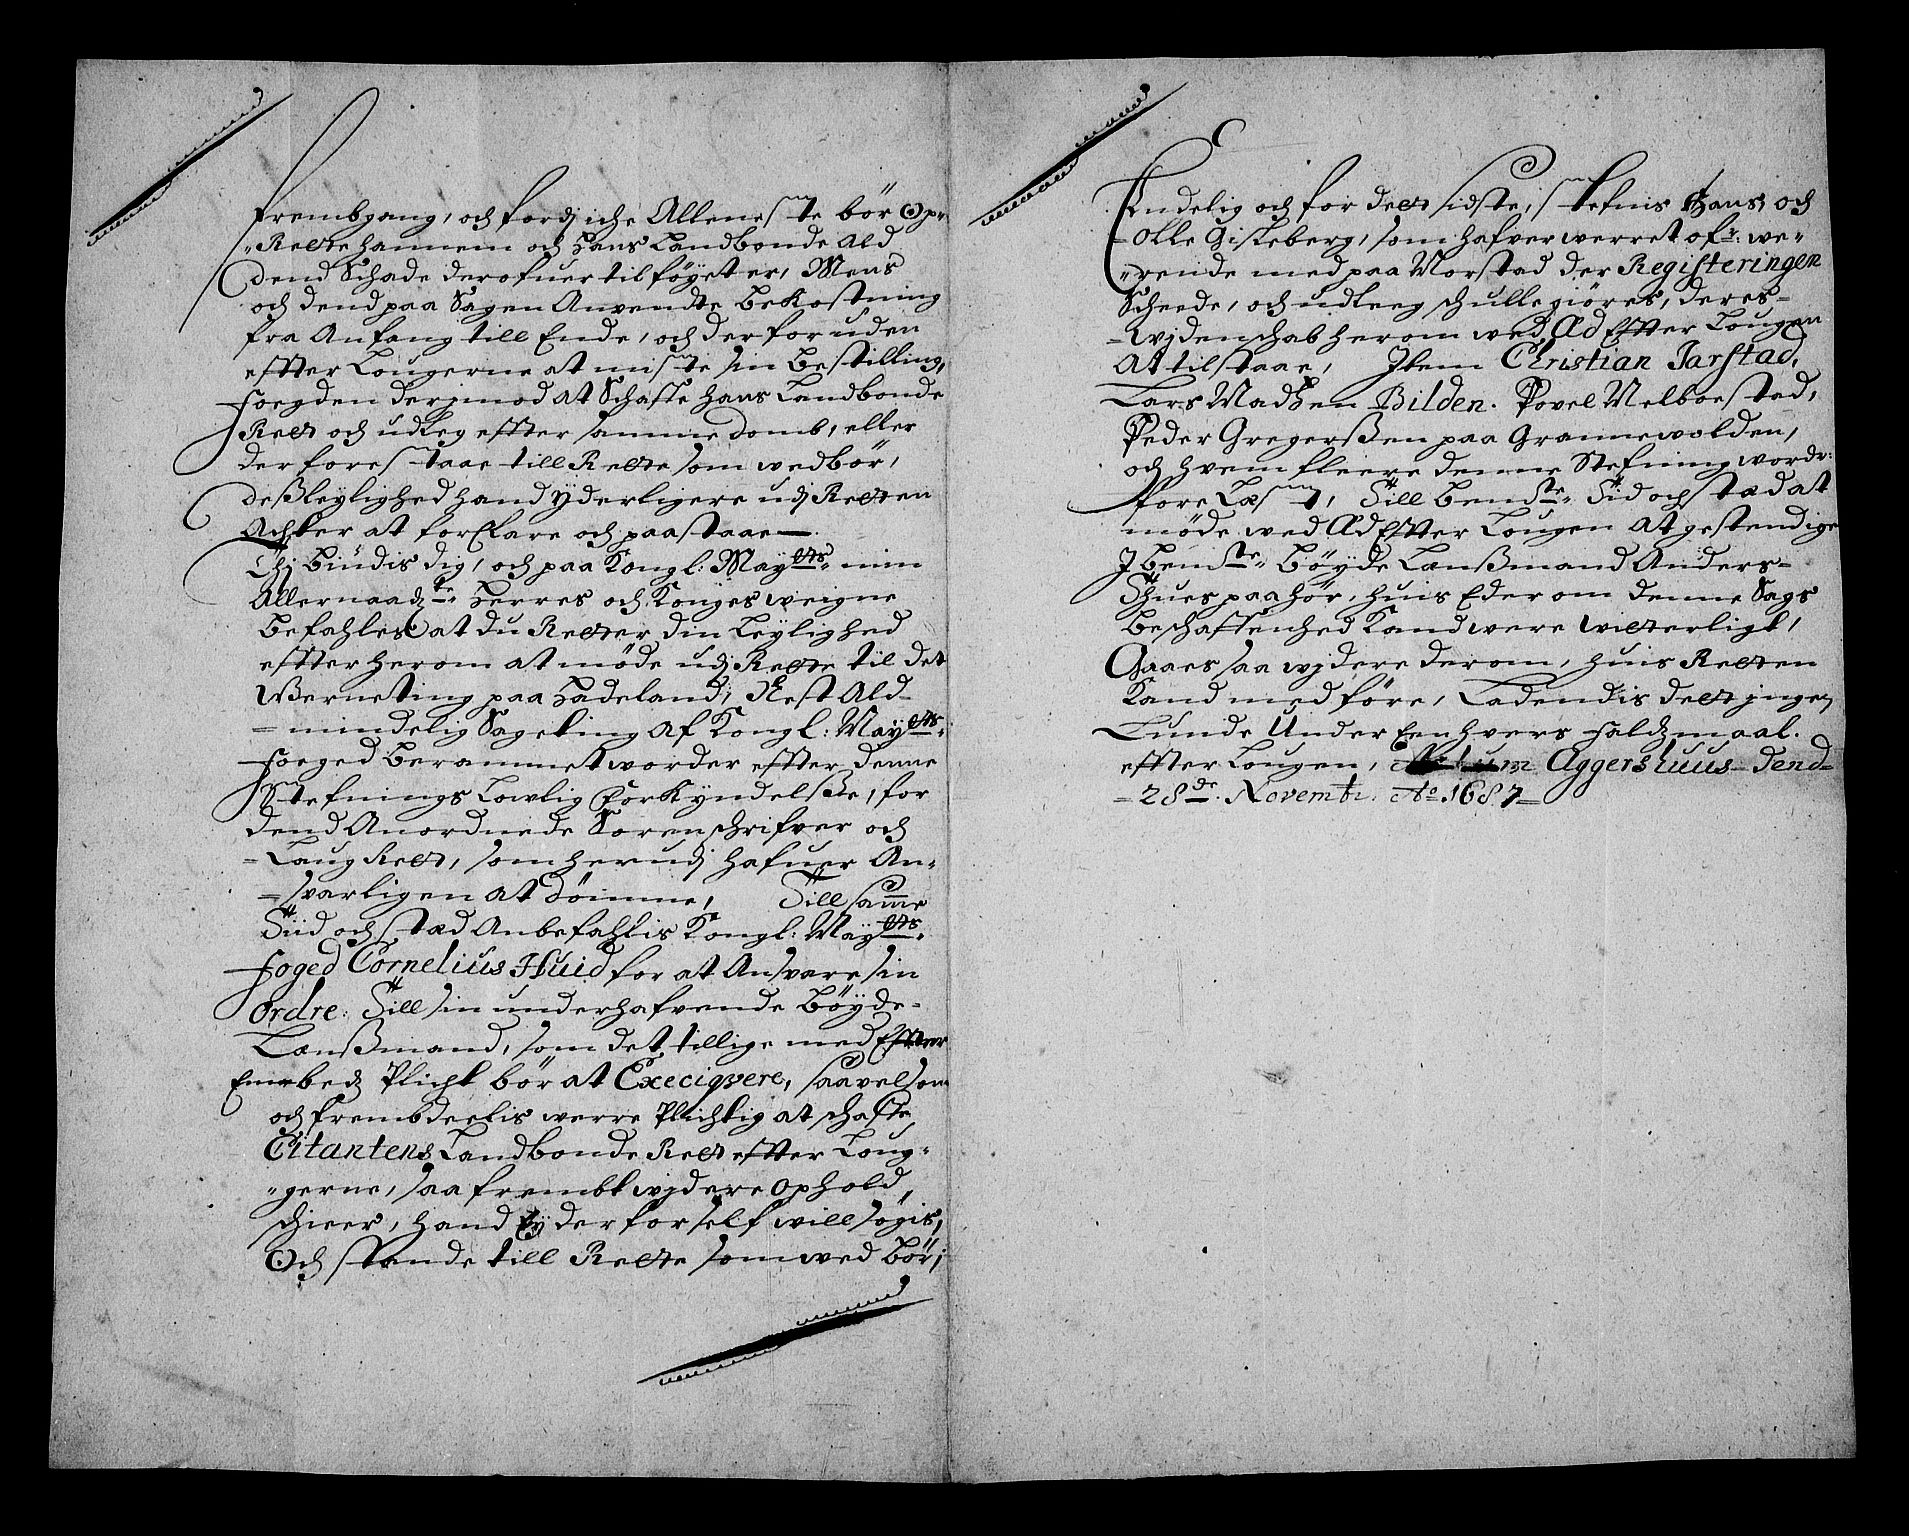 frembgang, och fordj iche Alleneste bör Op-
-Rette hannem och Hans Landbonde Ald
dend Schade derofuer tilföyet er, Mens
och dend paa Sagen Anvendte bekostning
fra Anfang till Ende, och der for uden
effter Lougerne at miste sin bestilling,
foegden derjmod at Schaffe hans Landbonde
Rett och udleg effter samme domb, eller
der fore staae till Rette som wedbör,
desleyglighed hand ÿderligere udj Retten
Achter at forClare och paastaae —
Thj biudis dig, och paa Kongl: Mayets min
Allernaadste Herres och Konges weigne
befahles at du Retter din Leylighed
effter herom at möde udj Rette til det
Werneting paa Hadeland, Nest Ald-
-mindelig Sageting af Kongl: Mayets
foeged berammet worder effter denne
Stefnings Lowlig forkyndelße, for
dend Anordnede Sorenschrifver och
Laug Rett, som herudj hafuer An-
-svarligen at dömme, Till samme
Tiid och stæd Anbefahlis Kongl: Mayets
foged Cornelius Huid for at Ansvare sin
ordre. Till sin underhafvende böyde-
Lanßmand, som det tillige med Effter
Embedz Plicht bör at Execiqvere, saavelsom
och frembdeelis werre Plichtig at schaffe
Citantens Landbonde Rett effter Loug-
-gerne, saa frembt wjdere ophold
schieer, hand Ey der for self will søgis,
Och stande till Rette som wed bör,
Endelig och for deet sidste, stefnis Hans, och
Olle Gisleberg, som hafver werret ofr: we-
-rende med paa Morstad der Registeringen
Scheede, och udleeg schulle giöres, deres
widenschab herom wed Æd Effter Lougen
At tilstaae, Item Christian Jarstad,
Lars Madßen Bilden. Povel Melboestad,
Peder Gregerßen paa Grannewolden,
och hvem fleere denne Stefning wordr:
fore Læst, Till bemte Tiid och stæd at
möde wed Æd Effter Lougen at gestendige
J bemte Böyde Lanßmand Anders
Thues paahör, huis Eder om denne Sags
beschaffenhed Kand were witterligt,
Gaaes saa wjdere derom, huis Retten
Kand medföre, Ladendis deet jngen
Lunde Under Eenhvers faldzmaal.
effter Lougen, Aggershuus dend
28de Novembr. Ao. 1687